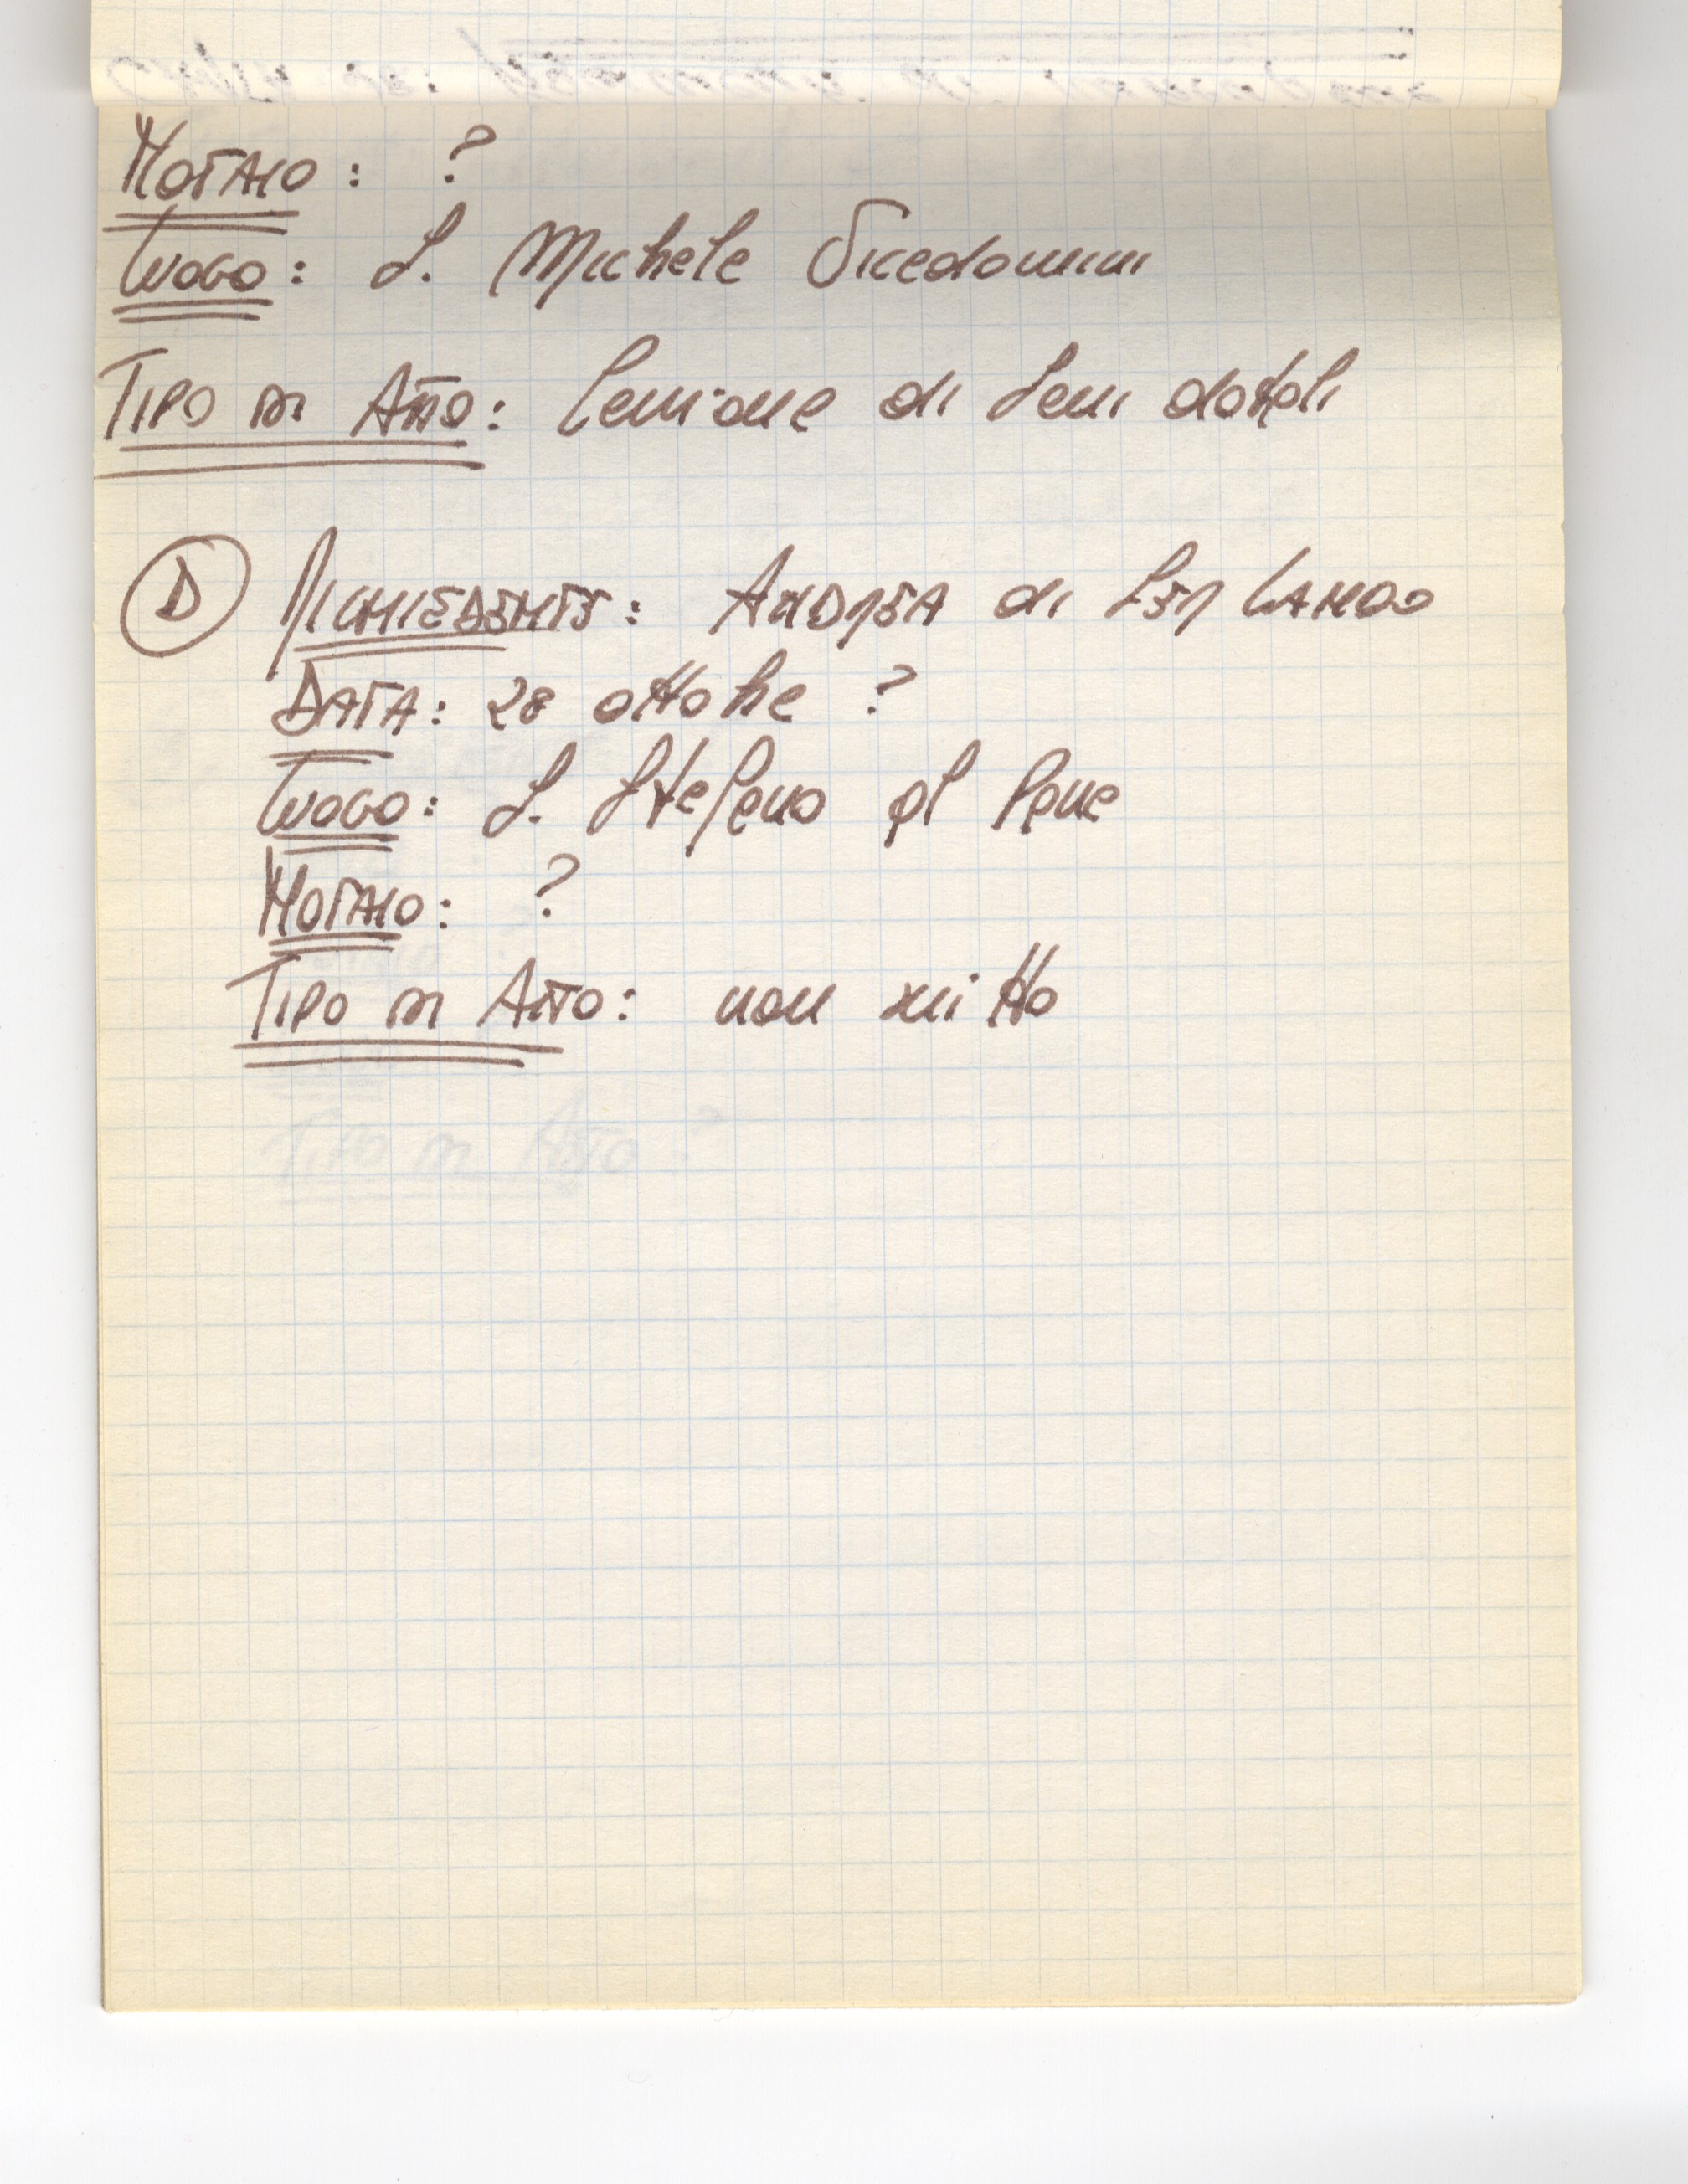 NOTAIO: ?
LUOGO: S. Michele Visdomini
TIPO DI ATTO: Cessione di beni dotali
D RICHIEDENTE: ANDREA di SER LANDO
DATA: 28 ottobre ?
LUOGO: S. Stefano al Pane
NOTAIO: ?
TIPO DI ATTO: non scritto